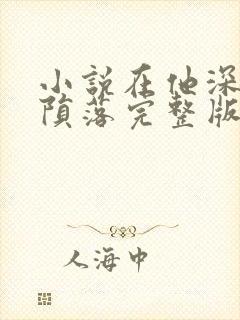 小说在他深
陨落完整版
人海中